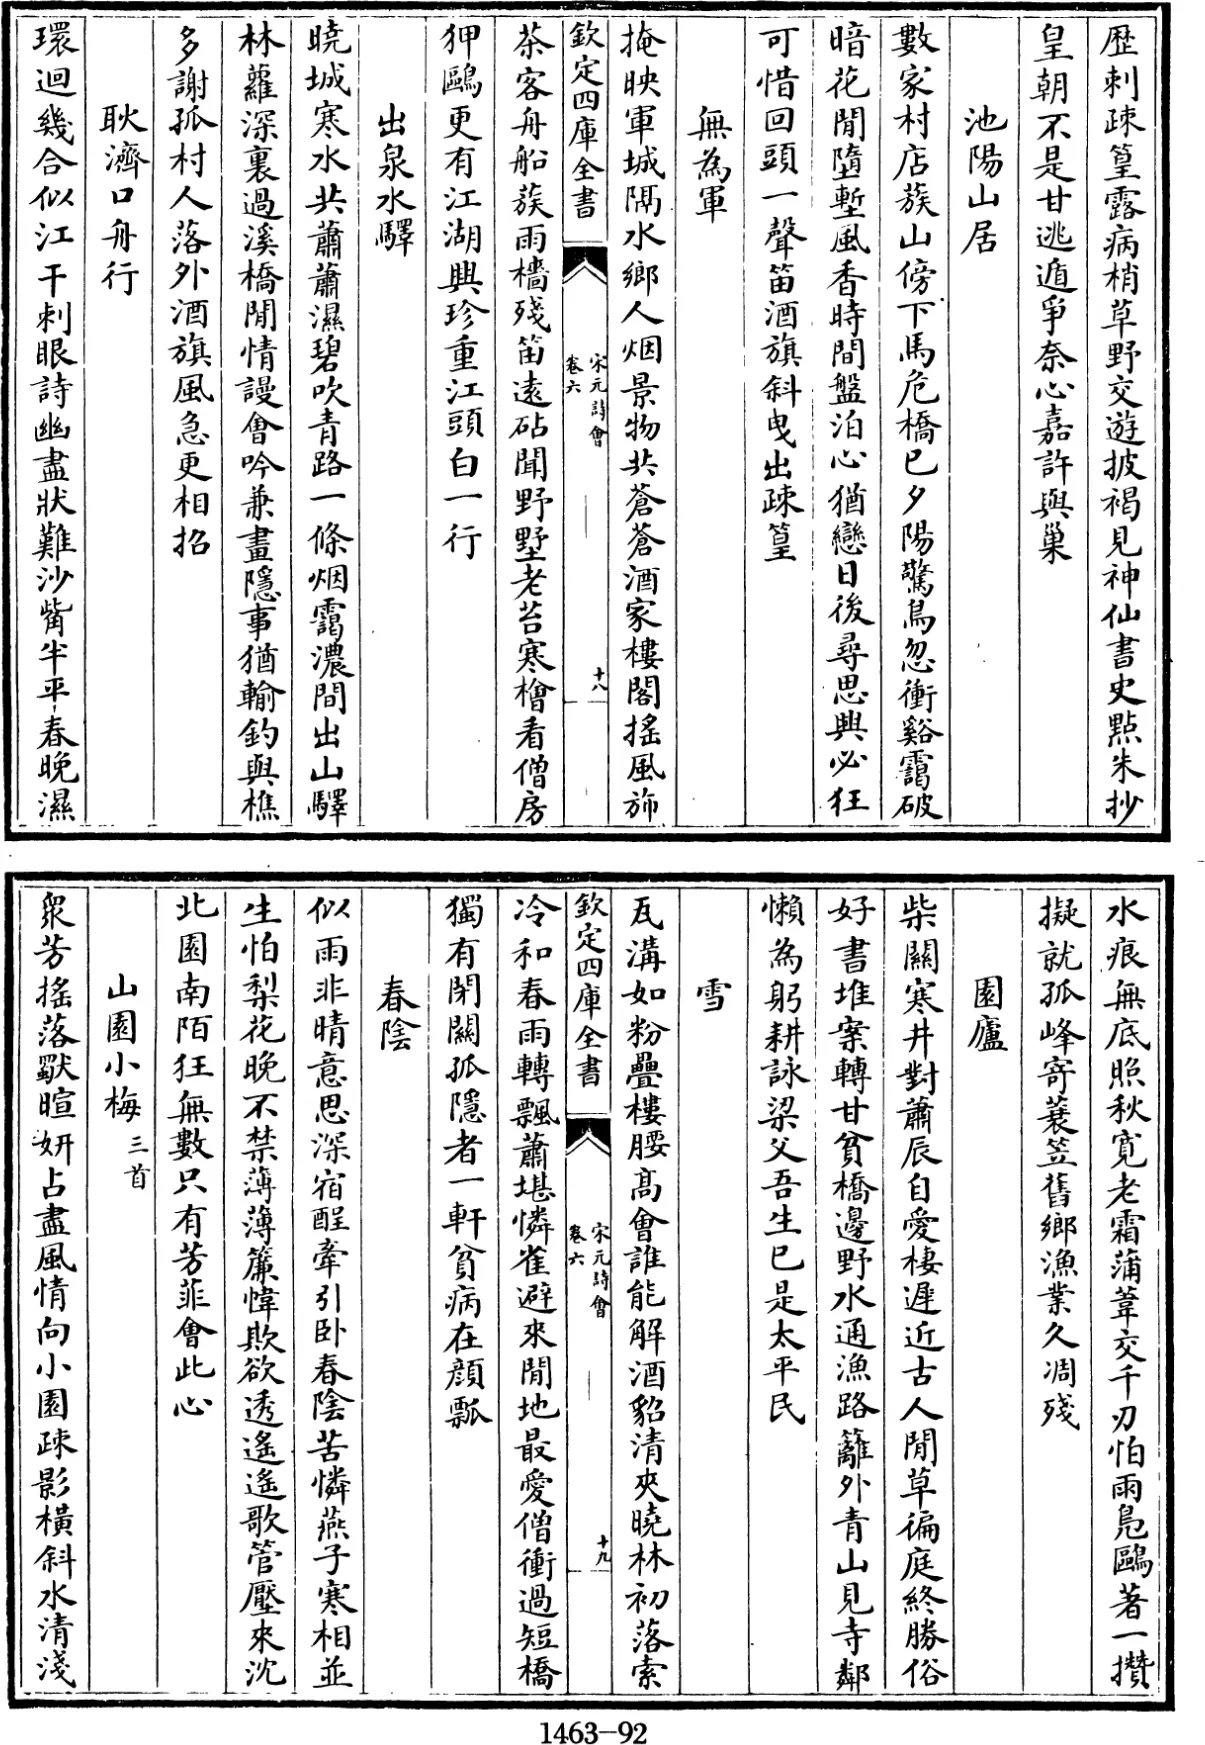 歷刺疎篁露病梢草野交遊披褐見神仙書史點朱抄
皇朝不是甘逃遁爭奈心嘉許與巢
池陽山居
數家村店蔟山傍下馬危橋已夕陽驚鳥忽衝谿靄破
暗花閒墮塹風香時間盤泊心猶戀日後尋思興必狂
可惜回頭一聲笛酒旗斜曳出疎篁
無為軍
掩映軍城隔水鄉人烟景物共蒼蒼酒家樓閣揺風斾
欽定四庫全書
宋元詩會
卷六
十八
茶客舟船蔟雨檣殘笛遠砧聞野墅老苔寒檜看僧房
狎鷗更有江湖興珍重江頭白一行
出泉水驛
曉城寒水共蕭蕭濕碧吹青路一條烟靄濃間出山驛
林蘿深裏過溪橋閒情謾會吟兼畫隱事猶輸釣與樵
多謝孤村人落外酒旗風急更相招
耿濟口舟行
環迴幾合似江干刺眼詩幽盡狀難沙觜半平春晚濕
水痕無底照秋寛老霜蒲葦交千刃怕雨鳬鷗著一攢
擬就孤峰寄蓑笠舊鄉漁業久凋殘
園廬
柴關寒井對蕭辰自愛棲遲近古人閒草徧庭終勝俗
好書堆案轉甘貧橋邊野水通漁路籬外青山見寺鄰
懶為躬耕詠梁父吾生已是太平民
雪
瓦溝如粉疊樓腰高會誰能解酒貂清夾曉林初落索
欽定四庫全書
宋元詩會
卷六
十九
冷和春雨轉飄蕭堪憐雀避來閒地最愛僧衝過短橋
獨有閉關孤隱者一軒貧病在顔瓢
春陰
似雨非晴意思深宿酲牽引卧春陰苦憐燕子寒相並
生怕梨花晚不禁薄薄簾幃欺欲透遙遙歌管壓來沈
北園南陌狂無數只有芳菲會此心
山園小梅三首
衆芳揺落獸暄妍占盡風情向小園疎影橫斜水清淺
1463-92